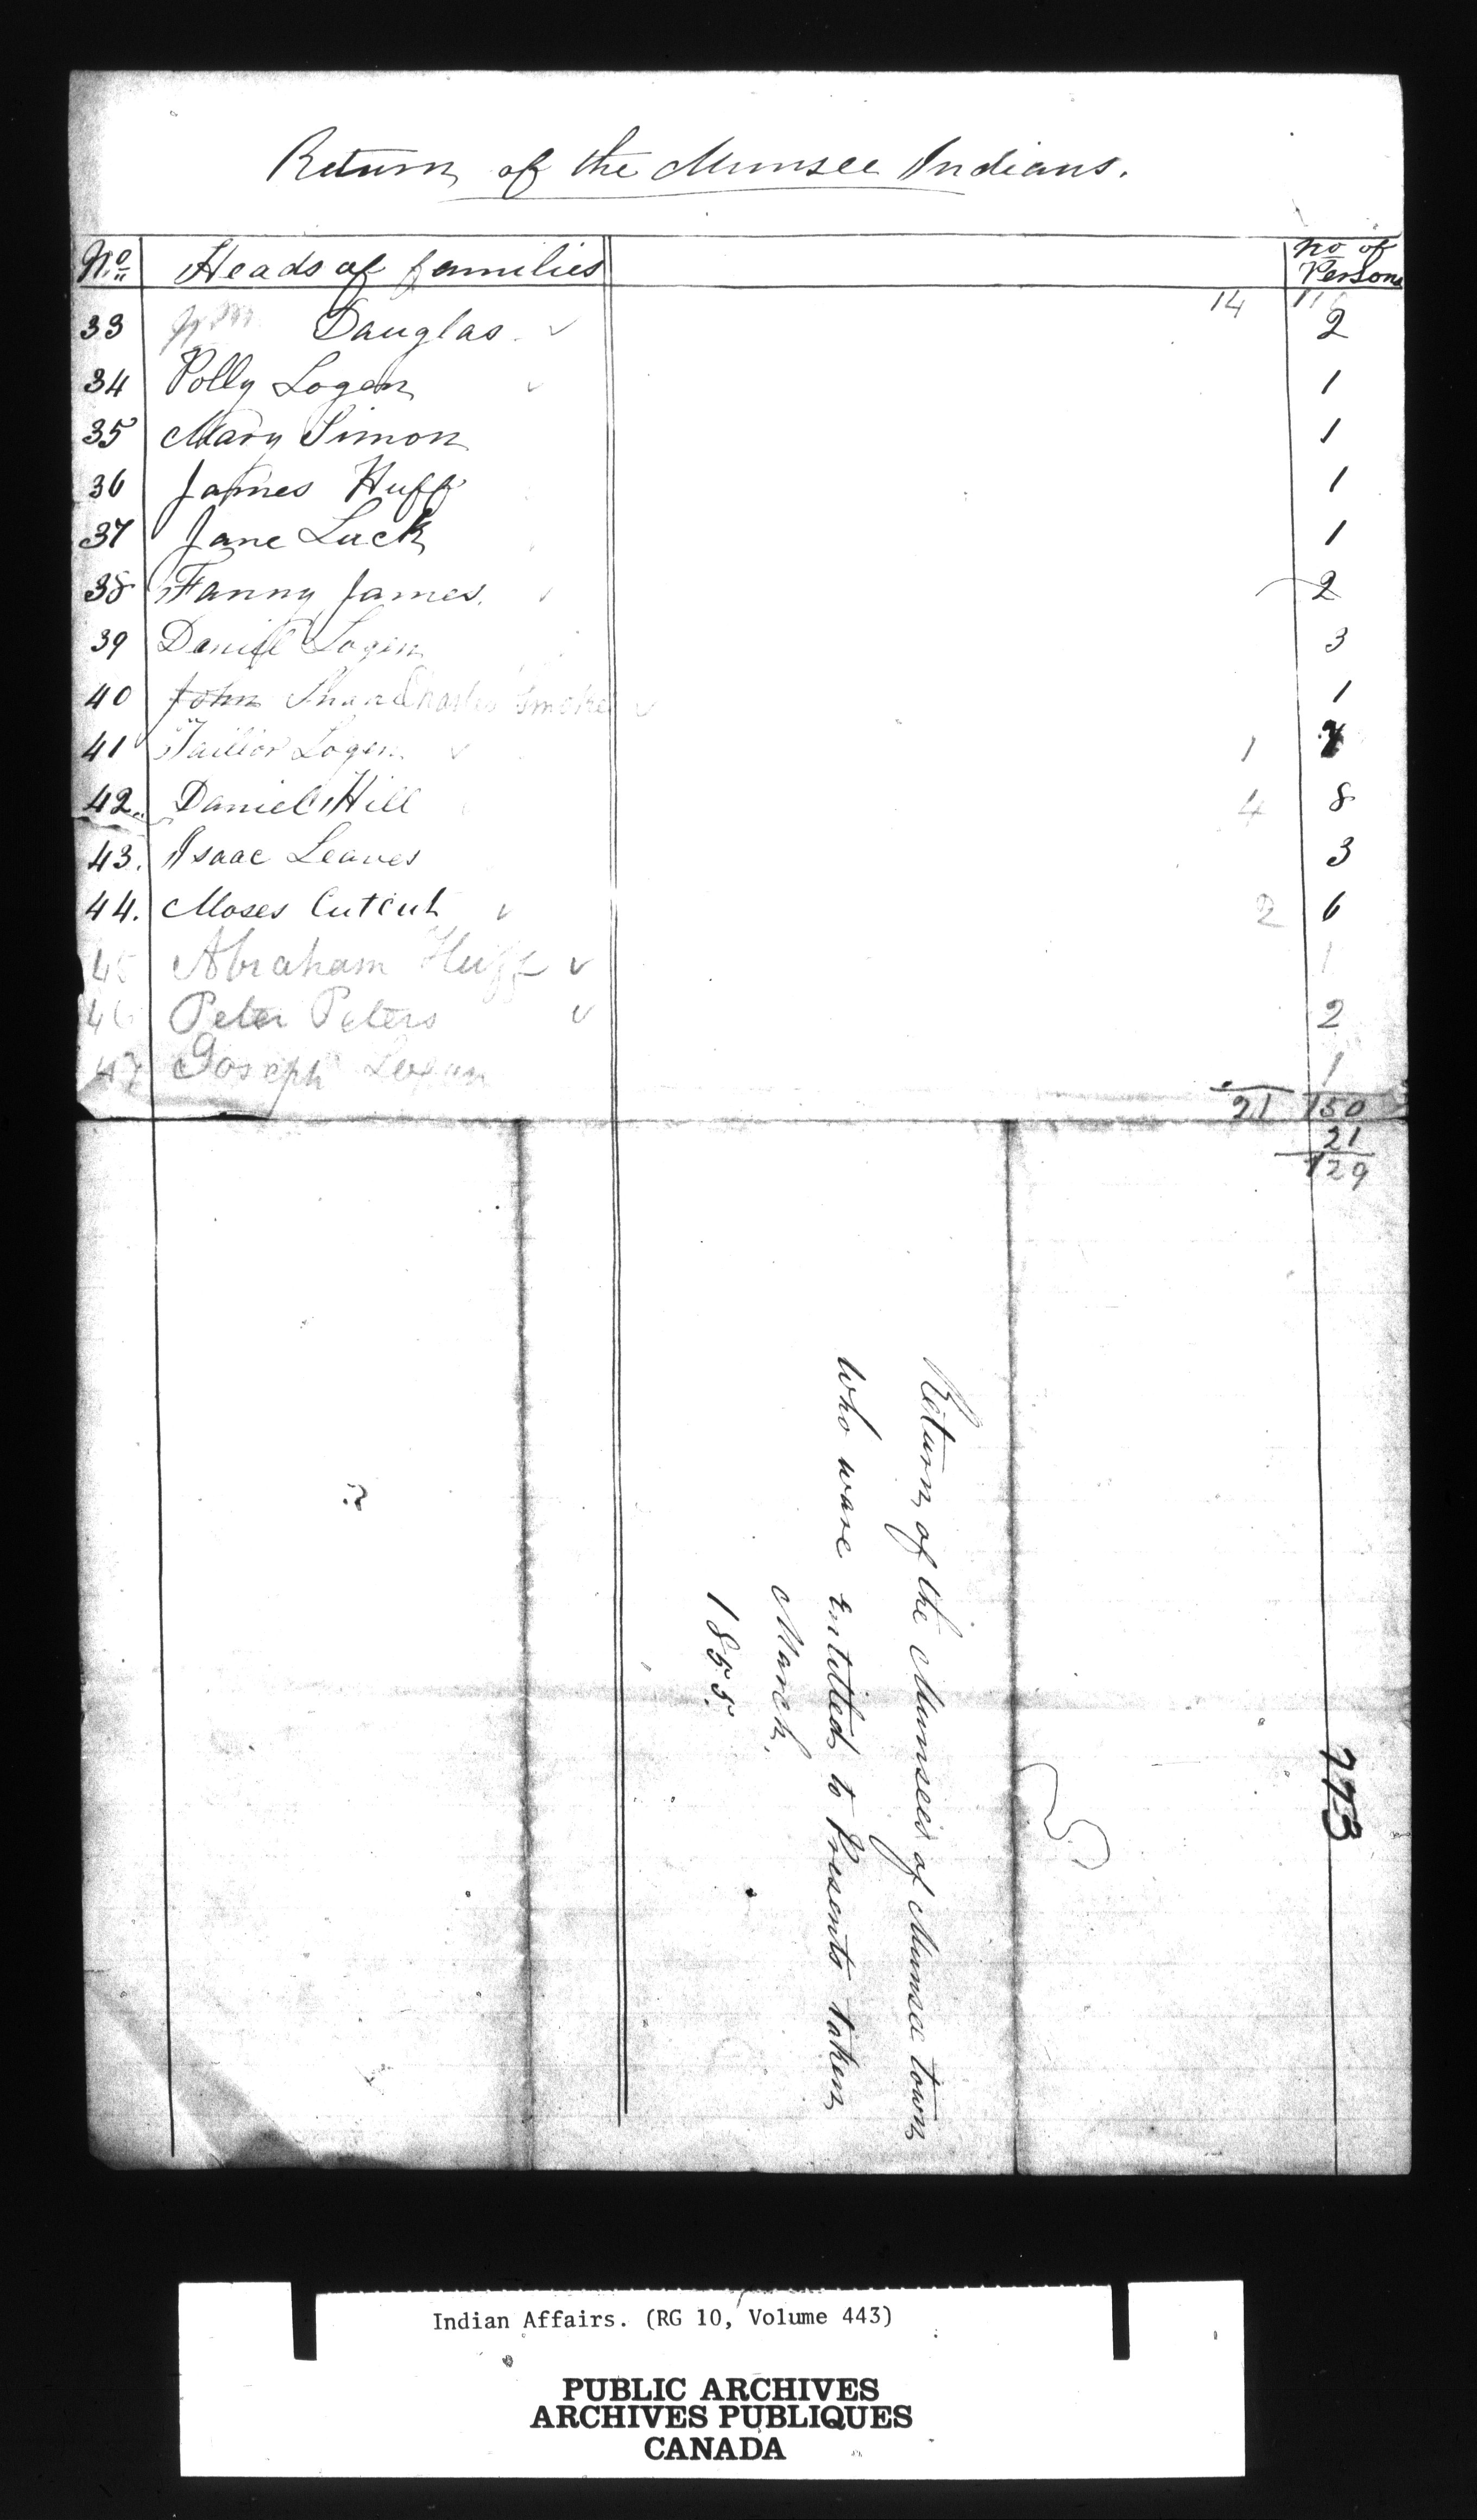 Return of the Munsee Indians.
No. Heads of families No of Persons
14 116
33 Wm Dauglas 2
34 Polly Logan 1
35 Mary Simon 1
36 James Huff 1
37 Jane Luck 1
38 Fanny James. 2
39 Daniel Logan 3
40 John Charles Smoke 1
41 Taillor Logan 1
42. Daniel Hill 4 8
43. Isaac Leaves 3
44. Moses Cutcut 2 6
45 Abraham Huff 1
46 Peter Peters 2
47 Joseph Logan 1
21 150
21
129
Return of the Munsees of Munsee town
who ware entitled to Presents taken
March.
1855.
773
Indian Affairs. (RG 10, Volume 443)
PUBLIC ARCHIVES
ARCHIVES PUBLIQUES
CANADA